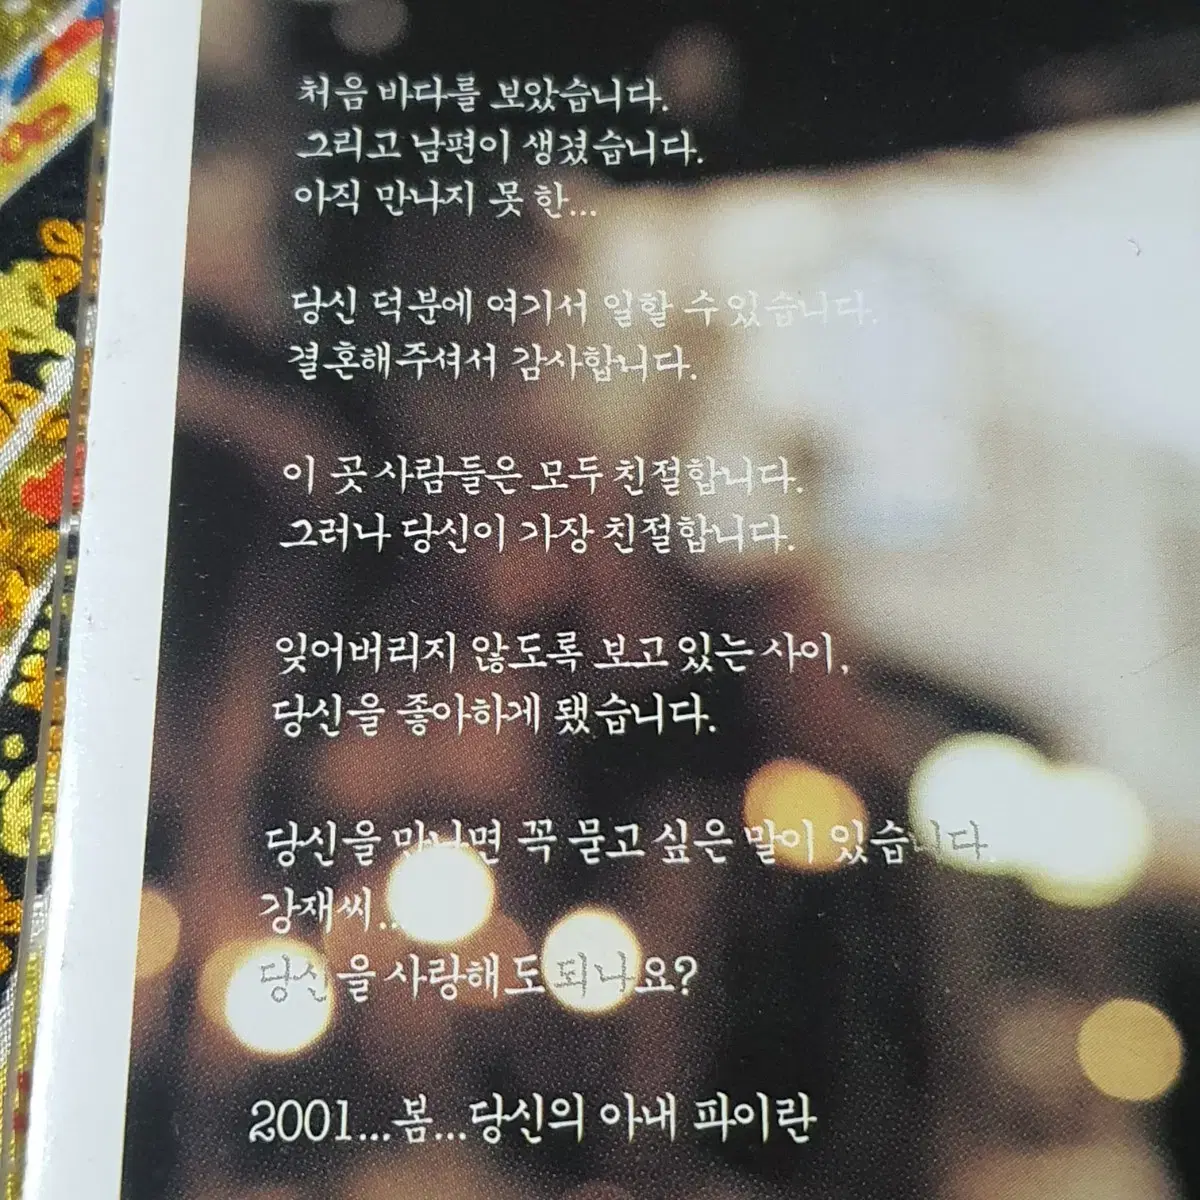 처음 바다를 보았습니다.
그리고 남편이 생겼습니다.
아직 만나지 못 한...
당신 덕분에 여기서 일할 수 있습니다.
결혼해주셔서 감사합니다.
이 곳 사람들은 모두 친절합니다.
그러나 당신이 가장 친절합니다.
잊어버리지 않도록 보고 있는 사이,
당신을 좋아하게 됐습니다.
당신을 만나면 꼭 묻고 싶은 말이 있습니다.
강재씨...
당신을 사랑해도 되나요?
2001...봄...당신의 아내 파이란